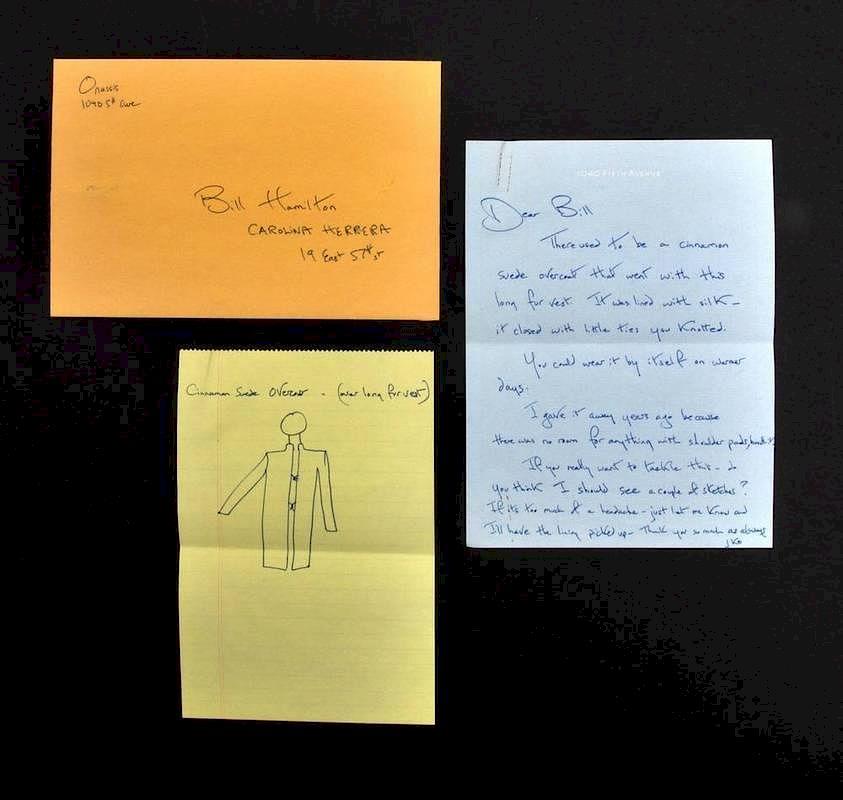 Onassis
1040 5th Ave
Bill Hamilton
CAROLINA HERRERA
19 East 57th St
1040 FIFTH AVENUE
Dear Bill
There used to be a cinnamon
suede overcoat that went with this
long fur vest. It was lined with silk -
it closed with little ties you knotted.
You could wear it by itself on warmer
days.
I gave it away years ago because
there was no room for anything with shoulder pads,
If you really want to tackle this - do
you think I should see a couple of sketches?
If it's too much of a headache - just let me know and
I'll have the lining picked up - Thank you so much as always
JKO
Cinnamon Suede Overcoat - (over long fur vest)